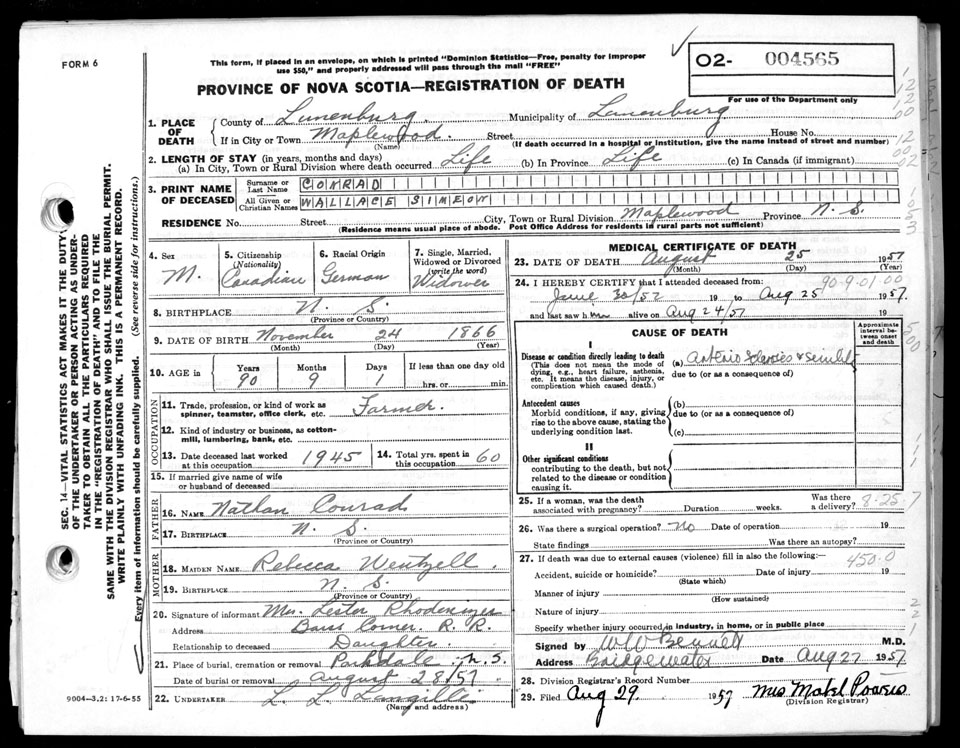 FORM 6
This form, if placed in an envelope, on which is printed "Dominion Statistics—Free, penalty for improper
use $50," and properly addressed will pass through the mail "FREE"
O2- 004565
For use of the Department only
PROVINCE OF NOVA SCOTIA—REGISTRATION OF DEATH
1. PLACE OF DEATH County of Lunenburg. Municipality of Lunenburg
If in City or Town Maplewood. Street House No.
(Name) (If death occurred in a hospital or institution, give the name instead of street and number)
2. LENGTH OF STAY (in years, months and days)
(a) In City, Town or Rural Division where death occurred Life (b) In Province Life (c) In Canada (if immigrant)
3. PRINT NAME OF DECEASED Surname or Last Name CONRAD
All Given or Christian Names WALLACE SIMEON
RESIDENCE No. Street City, Town or Rural Division Maplewood Province N. S.
(Residence means usual place of abode. Post Office Address for residents in rural parts not sufficient)
4. Sex M. 5. Citizenship (Nationality) Canadian 6. Racial Origin German 7. Single, Married, Widowed or Divorced (write the word) Widower
8. BIRTHPLACE N. S.
(Province or Country)
9. DATE OF BIRTH November 24 1866
(Month) (Day) (Year)
10. AGE in Years 90 Months 9 Days 1 If less than one day old
hrs. or min.
OCCUPATION
11. Trade, profession, or kind of work as spinner, teamster, office clerk, etc. Farmer.
12. Kind of industry or business, as cotton-mill, lumbering, bank, etc.
13. Date deceased last worked at this occupation 1945 14. Total yrs. spent in this occupation 60
15. If married give name of wife or husband of deceased
FATHER
16. NAME Nathan Conrad
17. BIRTHPLACE N. S.
(Province or Country)
MOTHER
18. MAIDEN NAME Rebecca Wentzell
19. BIRTHPLACE N. S.
(Province or Country)
20. Signature of informant Mrs. Lester Rhodenizer
Address Barss Corner. R. R.
Relationship to deceased Daughter
21. Place of burial, cremation or removal Parkdale N. S.
Date of burial or removal August 28/57
22. UNDERTAKER L. L. Langille
(Name and address)
MEDICAL CERTIFICATE OF DEATH
23. DATE OF DEATH August 25 1957
(Month) (Day) (Year)
24. I HEREBY CERTIFY that I attended deceased from: 90-9-01 00
June 30/52 19 to Aug 25 1957
and last saw h alive on Aug 24/57 19
CAUSE OF DEATH
Approximate interval between onset and death
I
Disease or condition directly leading to death (a)
(This does not mean the mode of dying, e.g., heart failure, asthenia, etc. It means the disease, injury, or complication which caused death.)
due to (or as a consequence of)
Antecedent causes (b)
Morbid conditions, if any, giving rise to the above cause, stating the underlying condition last.
due to (or as a consequence of)
(c)
II
Other significant conditions
contributing to the death, but not related to the disease or condition causing it.
25. If a woman, was the death associated with pregnancy? Duration weeks. Was there a delivery? 8-25-7
26. Was there surgical operation? No Date of operation 19
State findings Was there an autopsy?
27. If death was due to external causes (violence) fill in also the following:— 450.0
Accident, suicide or homicide? Date of injury 19
(State which)
Manner of injury
(How sustained)
Nature of injury
Specify whether injury occurred in industry, in home, or in public place
Signed by W W Bennett M.D.
Address Bridgewater Date Aug 27 1957
28. Division Registrar's Record Number
29. Filed Aug 29 1957
(Division Registrar)
SEC. 14—VITAL STATISTICS ACT MAKES IT THE DUTY
OF THE UNDERTAKER OR PERSON ACTING AS UNDER-
TAKER TO OBTAIN ALL THE PARTICULARS REQUIRED
IN THE "REGISTRATION OF DEATH" AND TO FILE THE
SAME WITH THE DIVISION REGISTRAR WHO SHALL ISSUE THE BURIAL PERMIT.
WRITE PLAINLY WITH UNFADING INK. THIS IS A PERMANENT RECORD.
Every item of information should be carefully supplied. (See reverse side for instructions.)
9004—3,2: 17-6-55